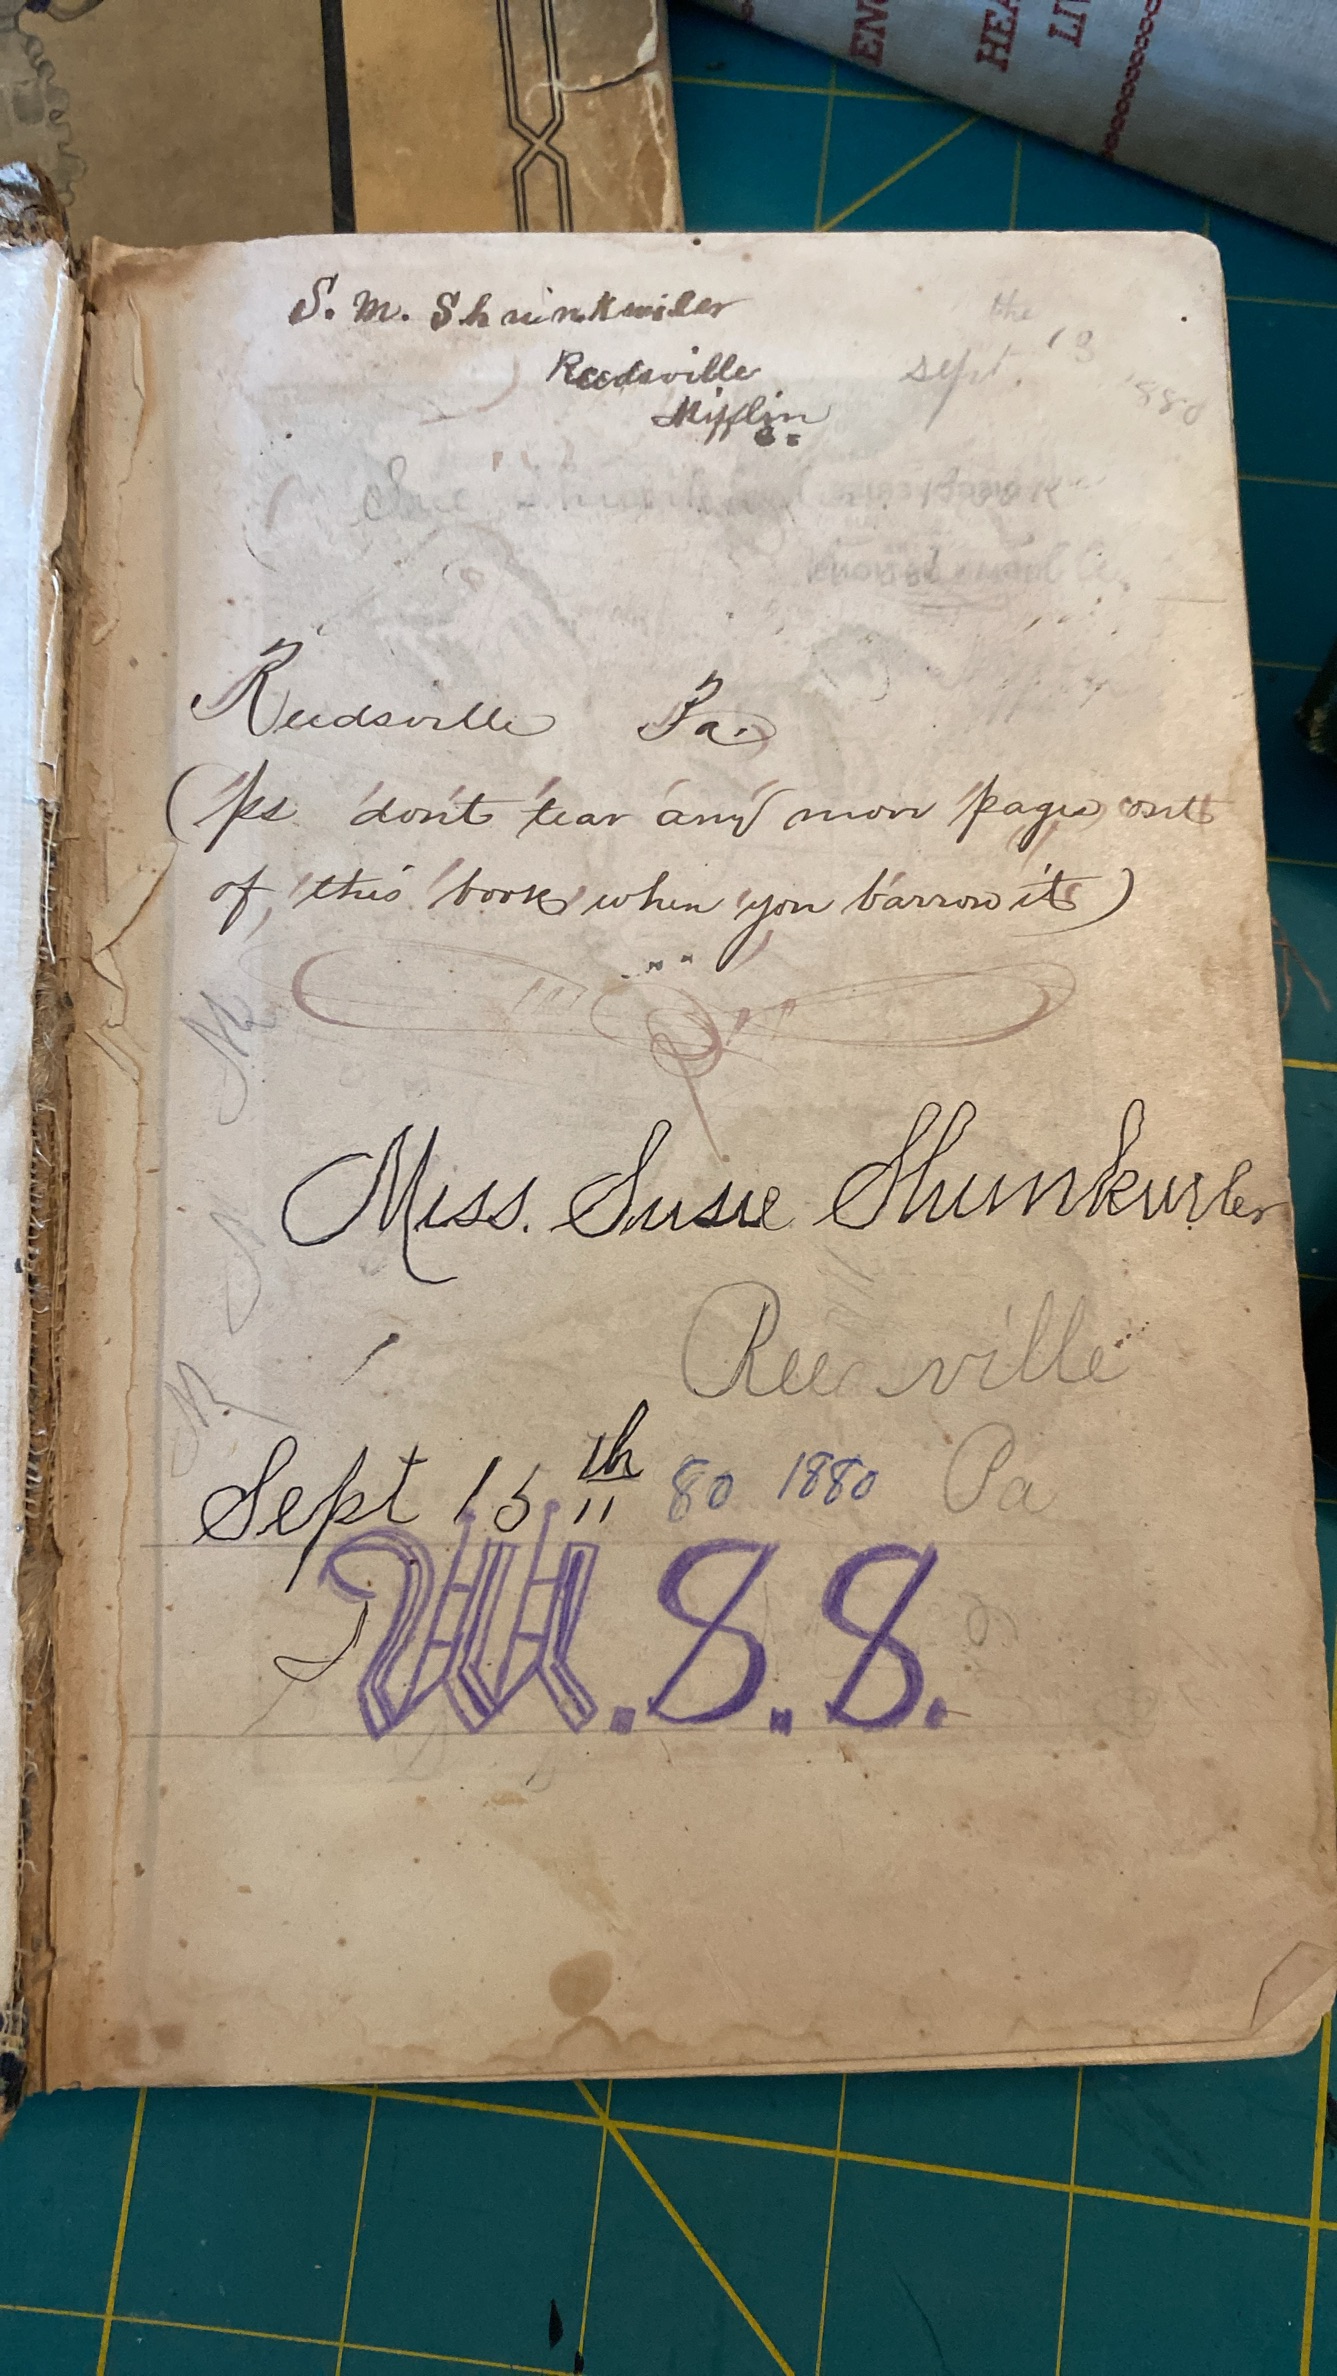 EN
HEA
LIV
S. M. Shunkwiler
the
Reedsville sept. 13
Mifflin 1880
Co.
Sue
Reedsville Pa.
(Ps don't tear any more pages out
of this book when you barrow it)
M
Miss. Susie Shunkwiler
Reedsville
Sept 15th 80 1880 Pa
M.S.S.